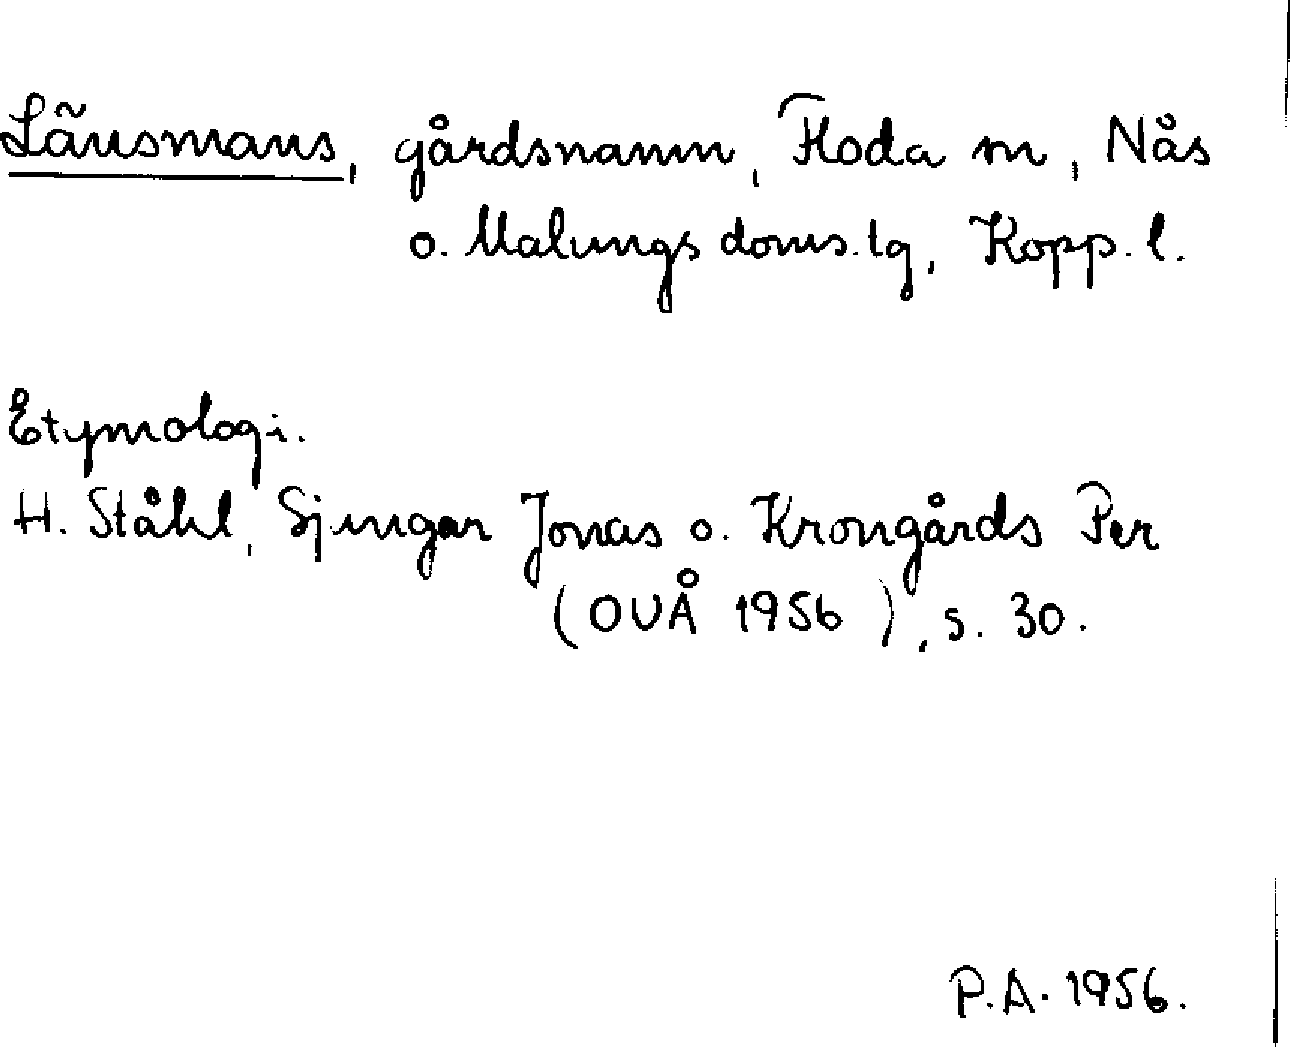 Länsmans, gårdsnamn, Floda sn, Nås
o. Malungs doms.lg, Kopp. l.
Etymologi.
H. Ståhl, Sjungar Jonas o. Krongårds Per
(OUÅ 1956), s. 30.
P.A. 1956.